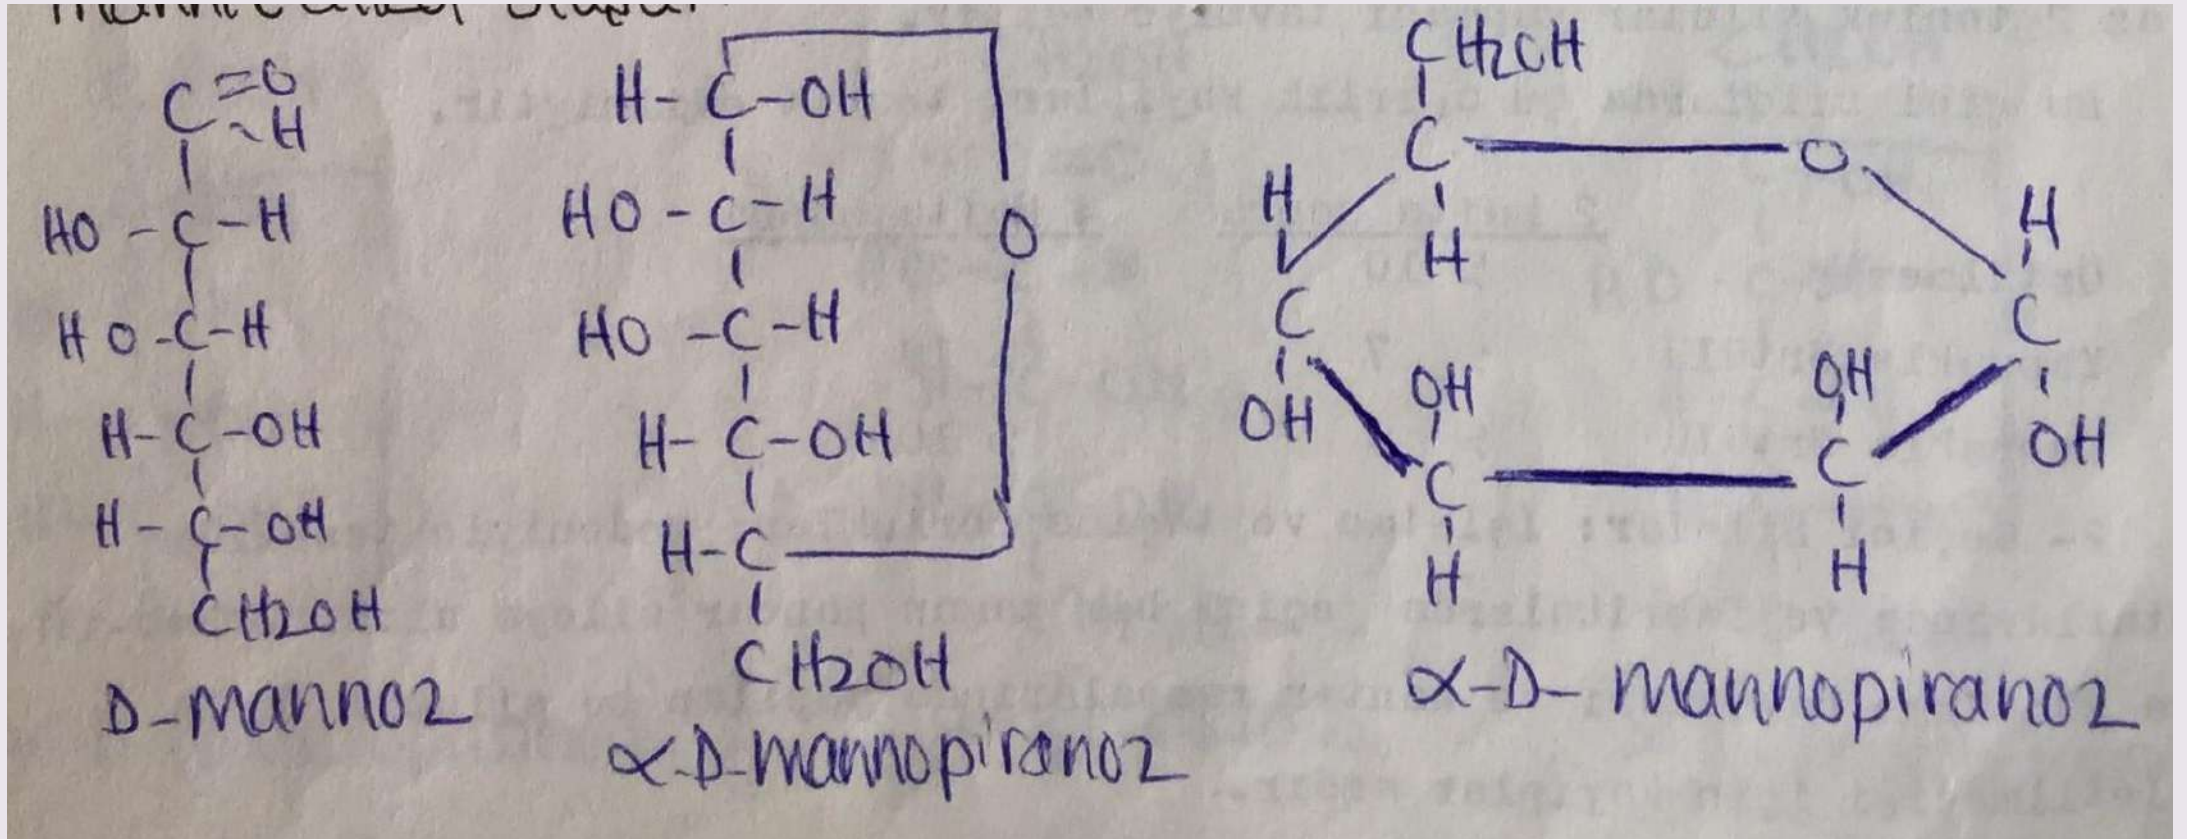 C=O
H
HO-C-H
HO-C-H
H-C-OH
H-C-OH
CH2OH
D-mannoz
H-C-OH
HO-C-H
O
HO-C-H
H-C-OH
H-C
CH2OH
α-D-mannopiranoz
CH2OH
C
O
H
H
H
C
C
OH
OH
OH
OH
C
C
H
H
α-D-mannopiranoz